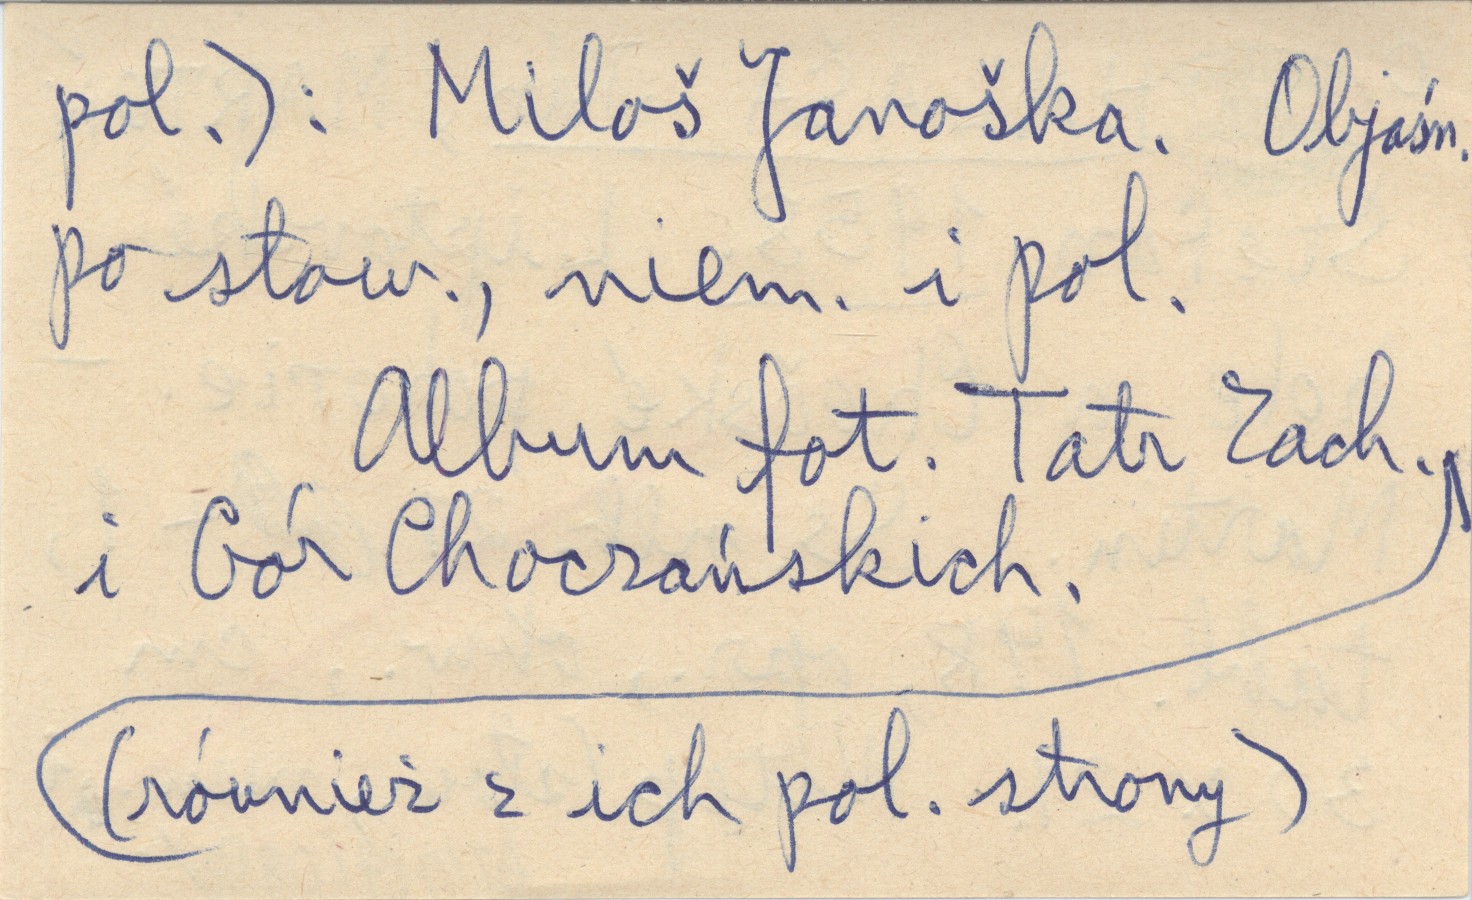 pol.): Miloš Janoška. Objaśn.
po słow., niem. i pol.
Album fot. Tatr Zach.
i Gór Choczańskich.
(również z ich pol. strony)